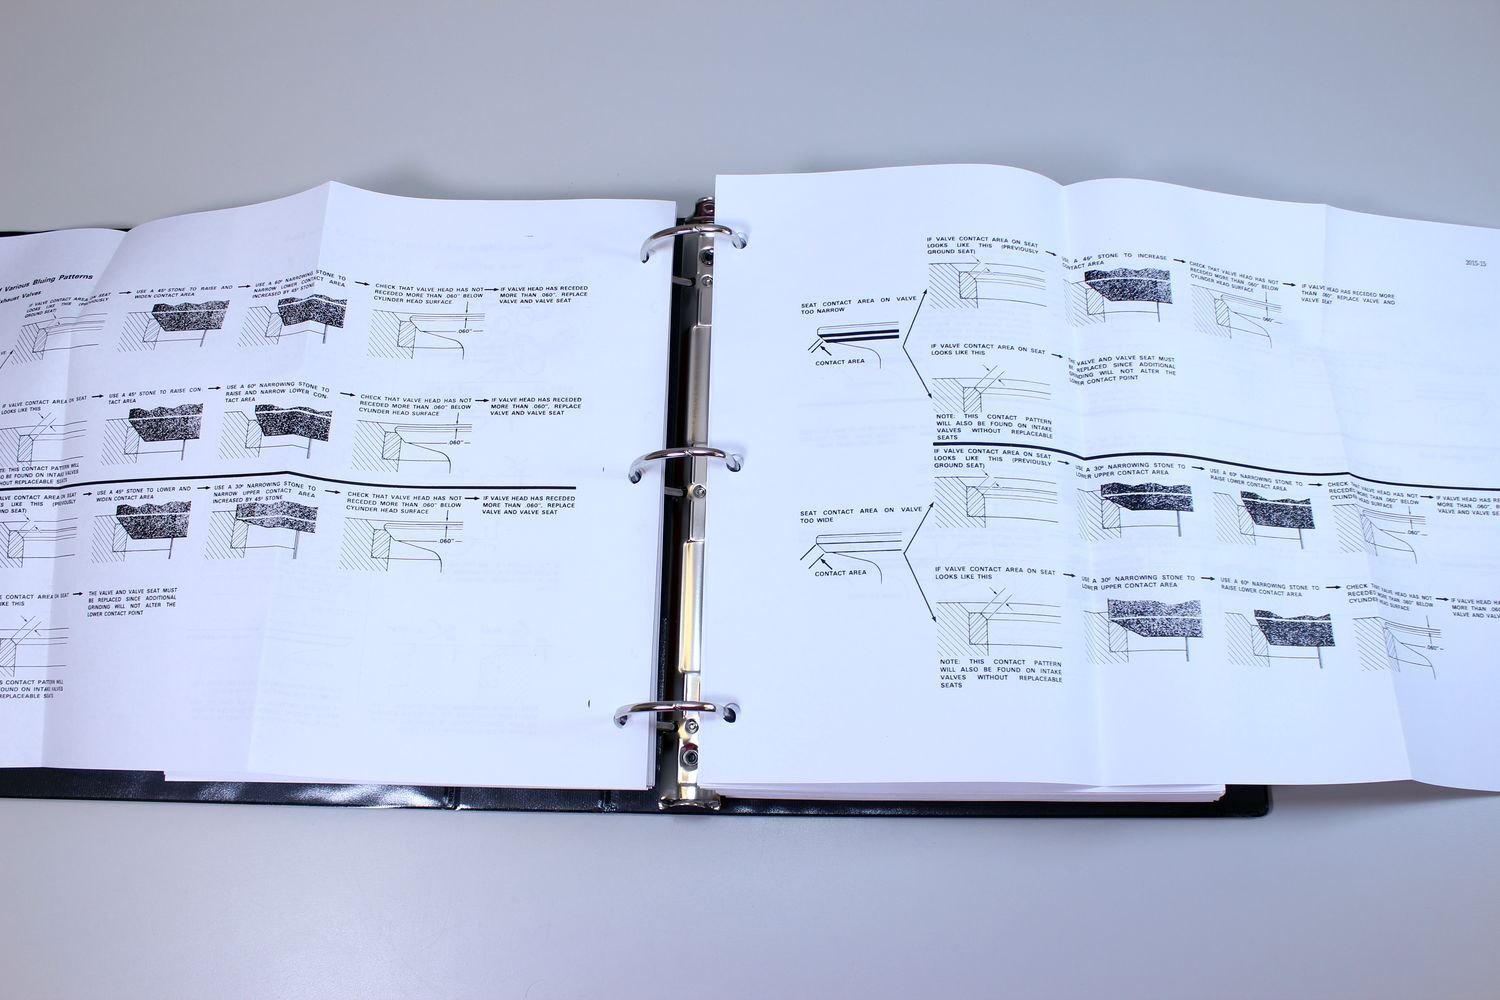 f Various Bluing Patterns
xhaust Valves
IF VALVE CONTACT AREA ON SEAT
LOOKS LIKE THIS (PREVIOUSLY
GROUND SEAT)
USE A 45º STONE TO RAISE AND
WIDEN CONTACT AREA
USE A 60º NARROWING STONE TO
NARROW LOWER CONTACT AREA
INCREASED BY 45º STONE
CHECK THAT VALVE HEAD HAS NOT
RECEDED MORE THAN .060" BELOW
CYLINDER HEAD SURFACE
IF VALVE HEAD HAS RECEDED
MORE THAN .060", REPLACE
VALVE AND VALVE SEAT
.060"
IF VALVE CONTACT AREA ON SEAT
LOOKS LIKE THIS
USE A 45º STONE TO RAISE CON
TACT AREA
USE A 60º NARROWING STONE TO
RAISE AND NARROW LOWER CON-
TACT AREA
CHECK THAT VALVE HEAD HAS NOT
RECEDED MORE THAN .060" BELOW
CYLINDER HEAD SURFACE
IF VALVE HEAD HAS RECEDED
MORE THAN .060", REPLACE
VALVE AND VALVE SEAT
.060"
TE: THIS CONTACT PATTERN WILL
SO BE FOUND ON INTAKE VALVES
THOUT REPLACEABLE SEATS
VALVE CONTACT AREA ON SEAT
KS LIKE THIS (PREVIOUSLY
ND SEAT)
USE A 45º STONE TO LOWER AND
WIDEN CONTACT AREA
USE A 30º NARROWING STONE TO
NARROW UPPER CONTACT AREA
INCREASED BY 45º STONE
CHECK THAT VALVE HEAD HAS NOT
RECEDED MORE THAN .060" BELOW
CYLINDER HEAD SURFACE
IF VALVE HEAD HAS RECEDED
MORE THAN .060", REPLACE
VALVE AND VALVE SEAT
.060"
CONTACT AREA ON SEAT
IKE THIS
THE VALVE AND VALVE SEAT MUST
BE REPLACED SINCE ADDITIONAL
GRINDING WILL NOT ALTER THE
LOWER CONTACT POINT
S CONTACT PATTERN WILL
OUND ON INTAKE VALVES
REPLACEABLE SEATS
2015-15
SEAT CONTACT AREA ON VALVE
TOO NARROW
CONTACT AREA
IF VALVE CONTACT AREA ON SEAT
LOOKS LIKE THIS (PREVIOUSLY
GROUND SEAT)
USE A 45º STONE TO INCREASE
CONTACT AREA
CHECK THAT VALVE HEAD HAS NOT
RECEDED MORE THAN .060" BELOW
CYLINDER HEAD SURFACE
IF VALVE HEAD HAS RECEDED MORE
THAN .060", REPLACE VALVE AND
VALVE SEAT
.060"
IF VALVE CONTACT AREA ON SEAT
LOOKS LIKE THIS
THE VALVE AND VALVE SEAT MUST
BE REPLACED SINCE ADDITIONAL
GRINDING WILL NOT ALTER THE
LOWER CONTACT POINT
NOTE: THIS CONTACT PATTERN
WILL ALSO BE FOUND ON INTAKE
VALVES WITHOUT REPLACEABLE
SEATS
SEAT CONTACT AREA ON VALVE
TOO WIDE
CONTACT AREA
IF VALVE CONTACT AREA ON SEAT
LOOKS LIKE THIS (PREVIOUSLY
GROUND SEAT)
USE A 30º NARROWING STONE TO
LOWER UPPER CONTACT AREA
USE A 60º NARROWING STONE TO
RAISE LOWER CONTACT AREA
CHECK THAT VALVE HEAD HAS NOT
RECEDED MORE THAN .060" BELOW
CYLINDER HEAD SURFACE
IF VALVE HEAD HAS RE
MORE THAN .060",
VALVE AND VALVE SE
.060"
IF VALVE CONTACT AREA ON SEAT
LOOKS LIKE THIS
USE A 30º NARROWING STONE TO
LOWER UPPER CONTACT AREA
USE A 60º NARROWING STONE TO
RAISE LOWER CONTACT AREA
CHECK THAT VALVE HEAD HAS NOT
RECEDED MORE THAN .060" BELOW
CYLINDER HEAD SURFACE
IF VALVE HEAD HA
MORE THAN .060"
VALVE AND VALV
.060"
NOTE: THIS CONTACT PATTERN
WILL ALSO BE FOUND ON INTAKE
VALVES WITHOUT REPLACEABLE
SEATS